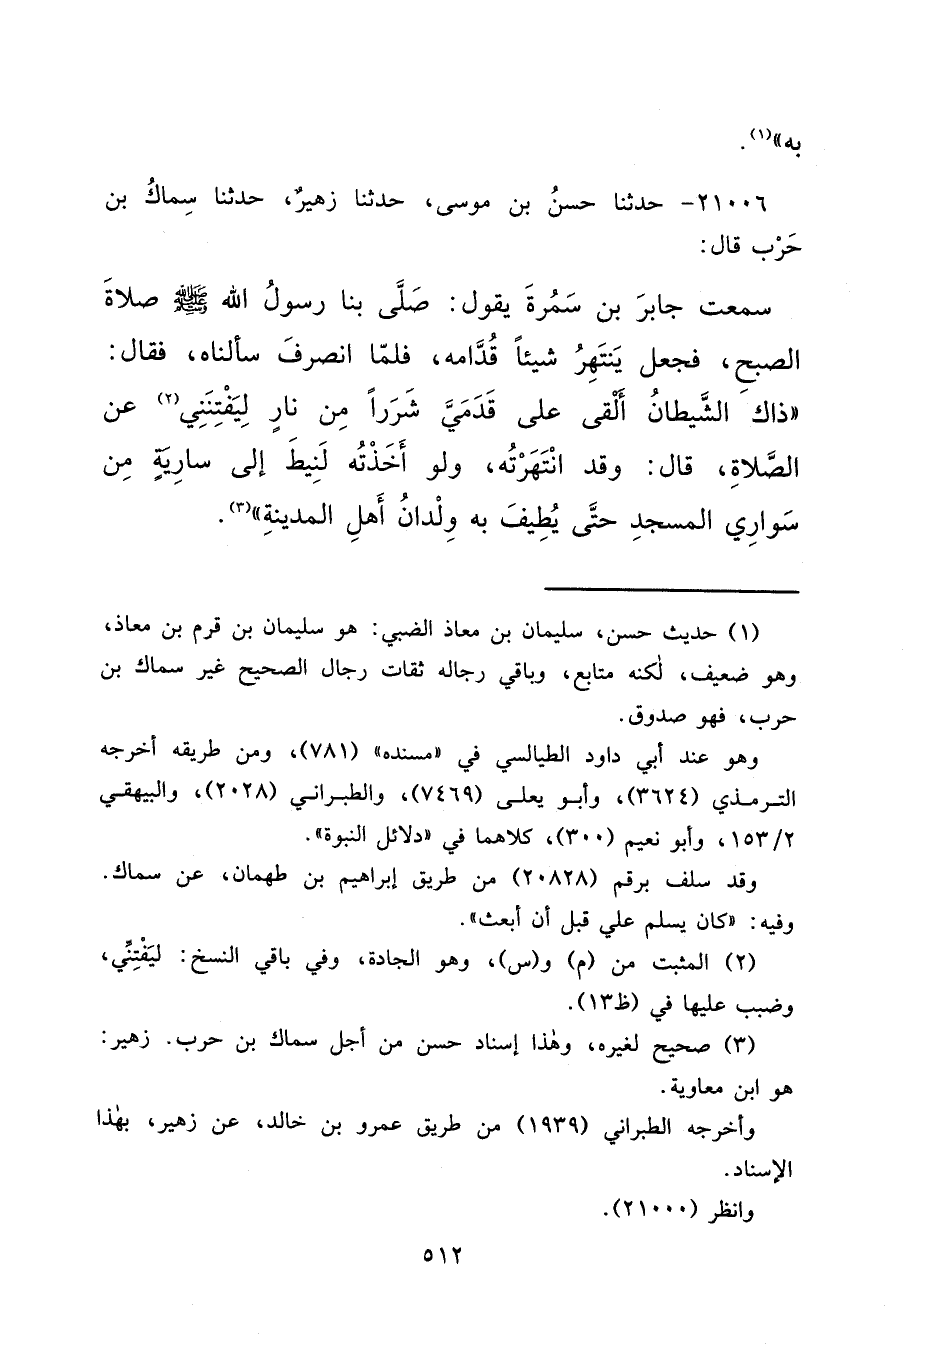 به»(١).
٢١٠٠٦- حدثنا حسنُ بن موسى، حدثنا زهيرٌ، حدثنا سِماكُ بن
حَرْب قال:
سمعت جابرَ بن سَمُرةَ يقول: صَلَّى بنا رسولُ الله ﷺ صلاةَ
الصبحِ، فجعل يَنتَهِرُ شيئاً قُدَّامه، فلمّا انصرفَ سألناه، فقال:
«ذاك الشَّيطانُ أَلْقى على قَدَمَيَّ شَرَراً مِن نارٍ لِيَفْتِنَنِي(٢) عن
الصَّلاةِ، قال: وقد انْتَهَرْتُه، ولو أَخَذْتُه لَنِيطَ إلى سارِيَةٍ مِن
سَوارِي المسجدِ حتَّى يُطِيفَ به وِلْدانُ أَهلِ المدينةِ»(٣).
(١) حديث حسن، سليمان بن معاذ الضبي: هو سليمان بن قرم بن معاذ،
وهو ضعيف، لٰكنه متابع، وباقي رجاله ثقات رجال الصحيح غير سماك بن
حرب، فهو صدوق.
وهو عند أبي داود الطيالسي في «مسنده» (٧٨١)، ومن طريقه أخرجه
الترمذي (٣٦٢٤)، وأبو يعلى (٧٤٦٩)، والطبراني (٢٠٢٨)، والبيهقي
٢/١٥٣، وأبو نعيم (٣٠٠)، كلاهما في «دلائل النبوة».
وقد سلف برقم (٢٠٨٢٨) من طريق إبراهيم بن طهمان، عن سماك.
وفيه: «كان يسلم علي قبل أن أبعث».
(٢) المثبت من (م) و(س)، وهو الجادة، وفي باقي النسخ: ليَفْتِنِّي،
وضبب عليها في (ظ١٣).
(٣) صحيح لغيره، وهٰذا إسناد حسن من أجل سماك بن حرب. زهير:
هو ابن معاوية.
وأخرجه الطبراني (١٩٣٩) من طريق عمرو بن خالد، عن زهير، بهٰذا
الإسناد.
وانظر (٢١٠٠٠).
٥١٢